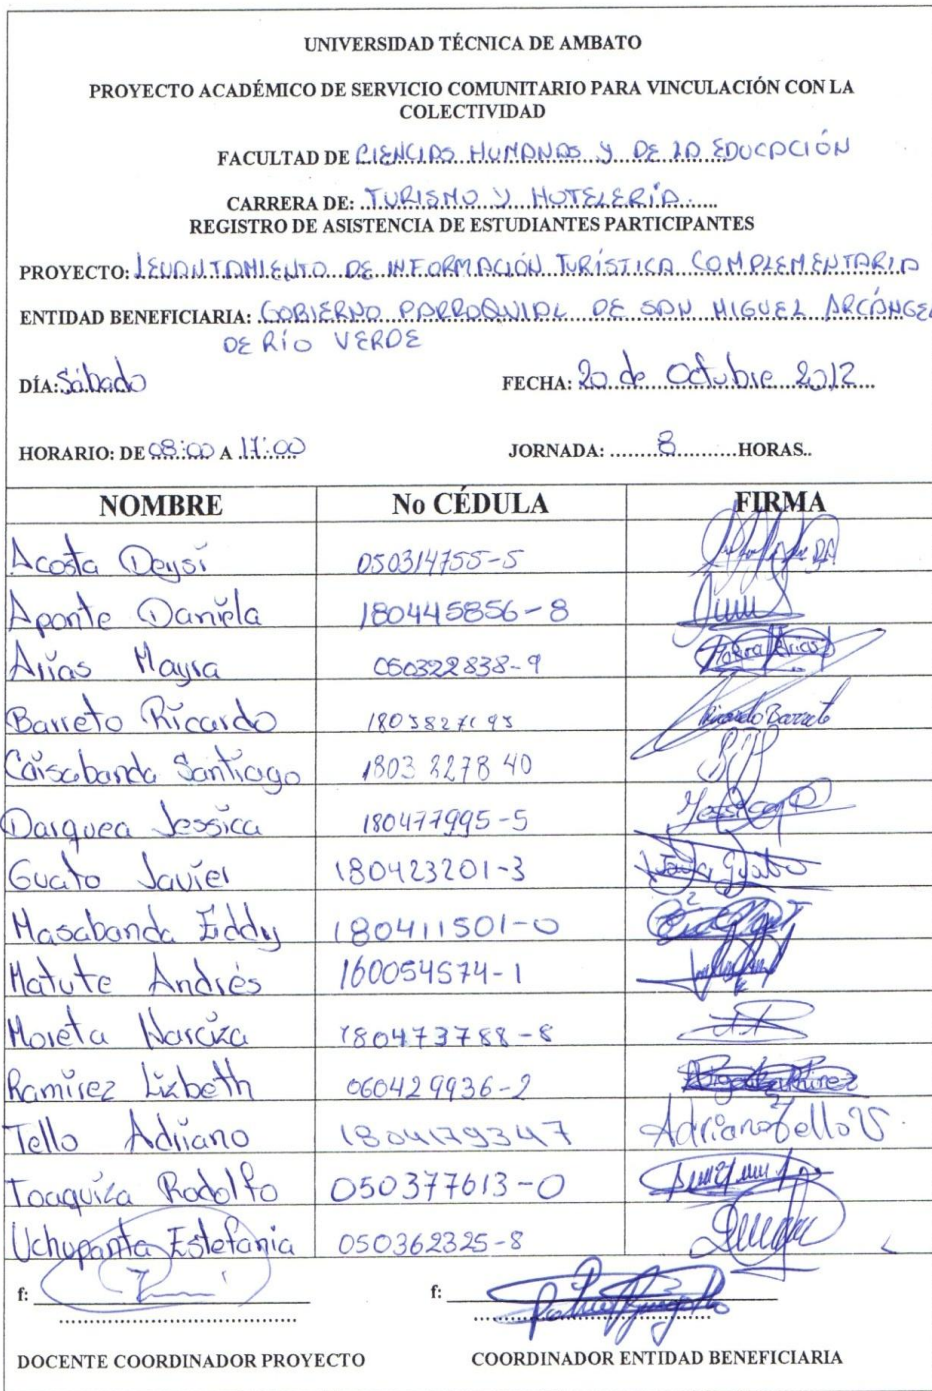 UNIVERSIDAD TÉCNICA DE AMBATO
PROYECTO ACADÉMICO DE SERVICIO COMUNITARIO PARA VINCULACIÓN CON LA
COLECTIVIDAD
FACULTAD DE CIENCIAS HUMANAS Y DE LA EDUCACIÓN
CARRERA DE: TURISMO Y HOTELERÍA
REGISTRO DE ASISTENCIA DE ESTUDIANTES PARTICIPANTES
PROYECTO: LEVANTAMIENTO DE INFORMACIÓN TURÍSTICA COMPLEMENTARIA
ENTIDAD BENEFICIARIA: GOBIERNO PARROQUIAL DE SAN MIGUEL ARCÁNGEL
DE RÍO VERDE
DÍA: Sábado FECHA: 20 de Octubre 2012
HORARIO: DE 08:00 A 17:00 JORNADA: 8 HORAS..
NOMBRE No CÉDULA FIRMA
Acosta Deysi 050314755-5
Aponte Daniela 180445856-8
Arias Mayra 050322838-9 Mayra Arias
Barreto Ricardo Ricardo Barreto
Caisabanda Santiago 1803 2278 40
Darquea Jessica 180477995-5 Jessica D
Guato Javier 180423201-3 Javier Guato
Masabanda Eddy 180411501-0
Matute Andrés 160054574-1
Moreta Narciza 180473788-8
Ramírez Lizbeth 060429936-2
Tello Adriano 1804179347 Adriano Tello V.
Toaquiza Rodolfo 050377613-0
Uchupanta Estefania 050362325-8
f: f:
DOCENTE COORDINADOR PROYECTO COORDINADOR ENTIDAD BENEFICIARIA